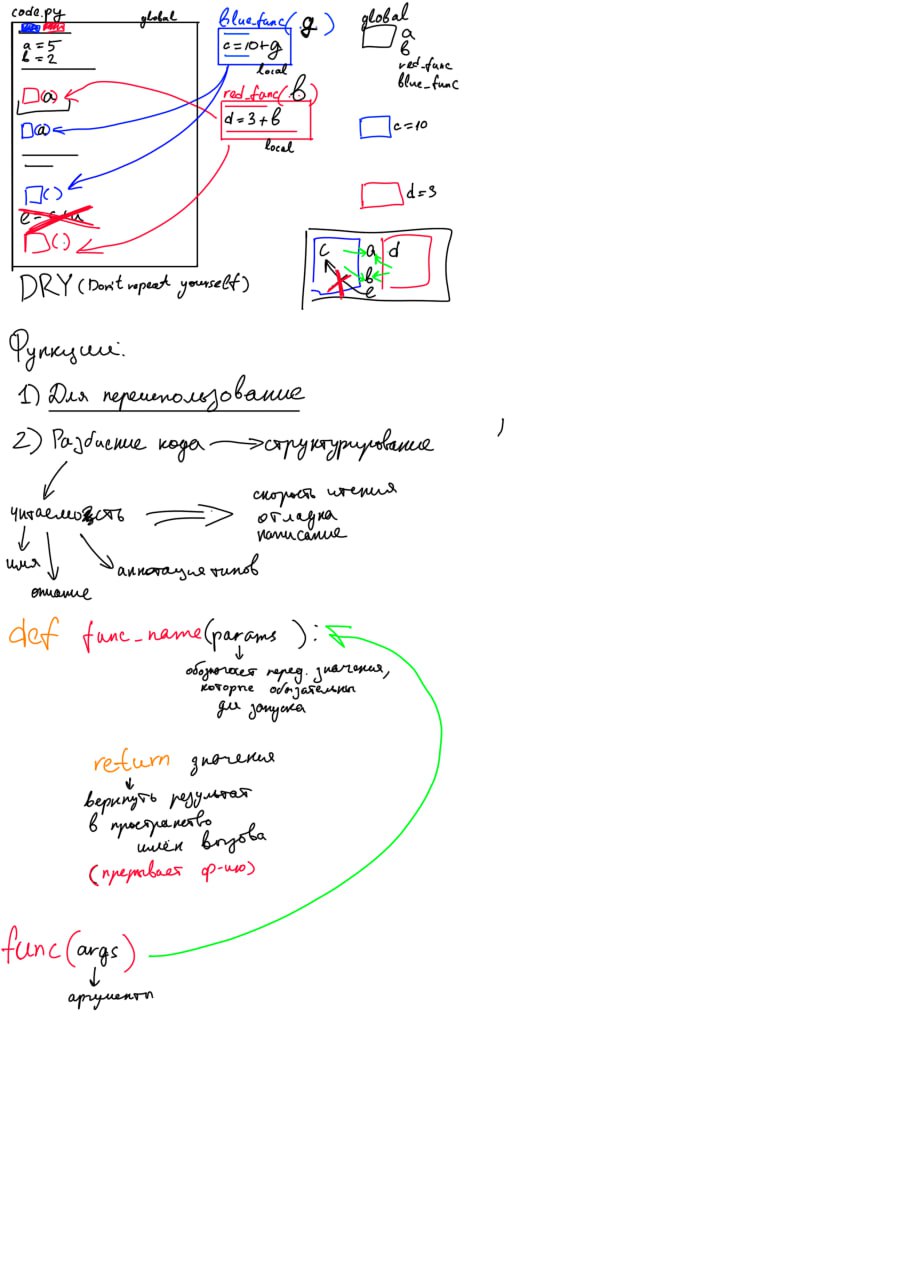 code.py
global
a = 5
b = 2
(a)
(a)
( )
( )
blue_func( g )
c = 10 + g
local
red_func( b )
d = 3 + b
local
global
a
b
red_func
blue_func
c = 10
d = 3
c a d
b
e
DRY (Don't repeat yourself)
Функции:
1) Для переиспользование
2) Разбиение кода → структурирование
читаемость
скорость чтения
отладка
написание
имя
описание
аннотация типов
def func_name(params ):
обозначает перед. значения,
которые обязательны
для запуска
return значения
вернуть результат
в пространство
имён вызова
(прерывает ф-ию)
func(args )
аргументы